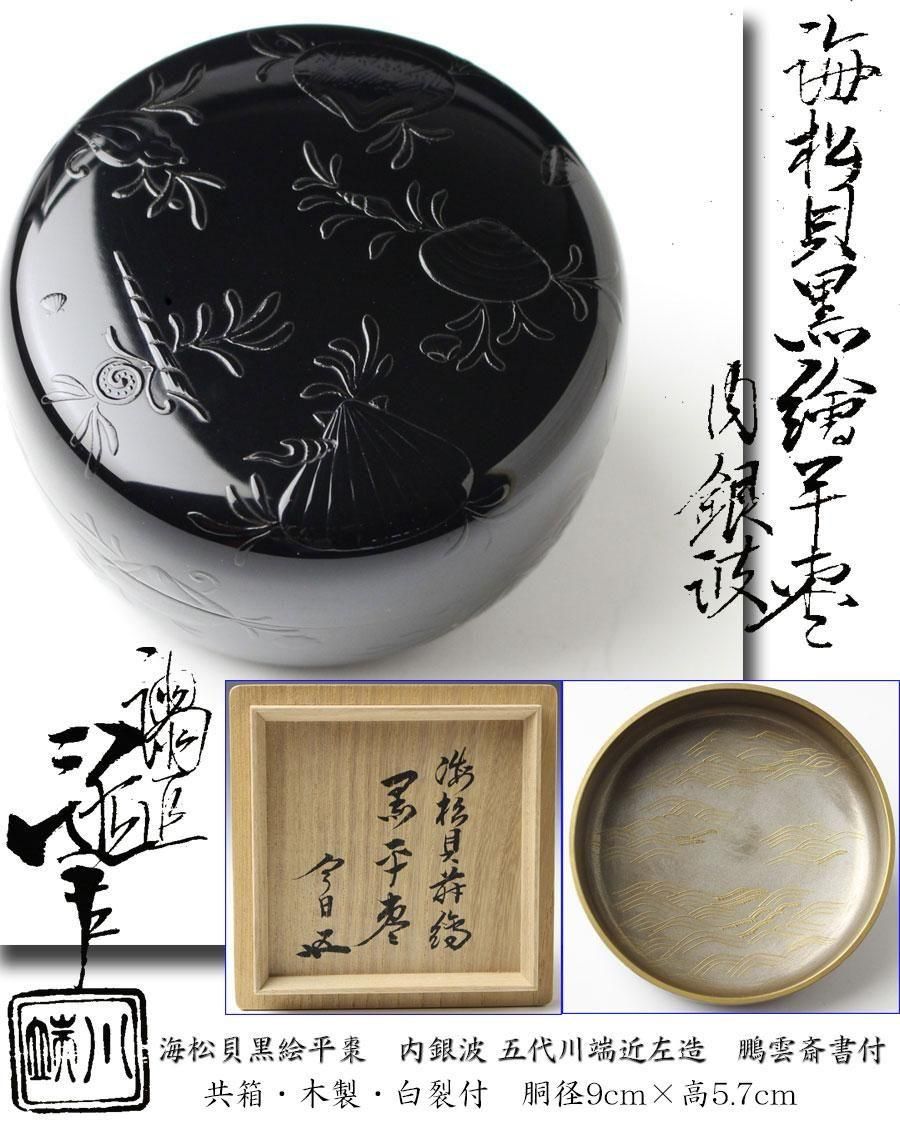 海松貝黒繪平棗
内銀波
海松貝蒔繪
黒平棗
今日
川端
海松貝黒絵平棗　内銀波 五代川端近左造　鵬雲斎書付
共箱・木製・白裂付　胴径9cm×高5.7cm